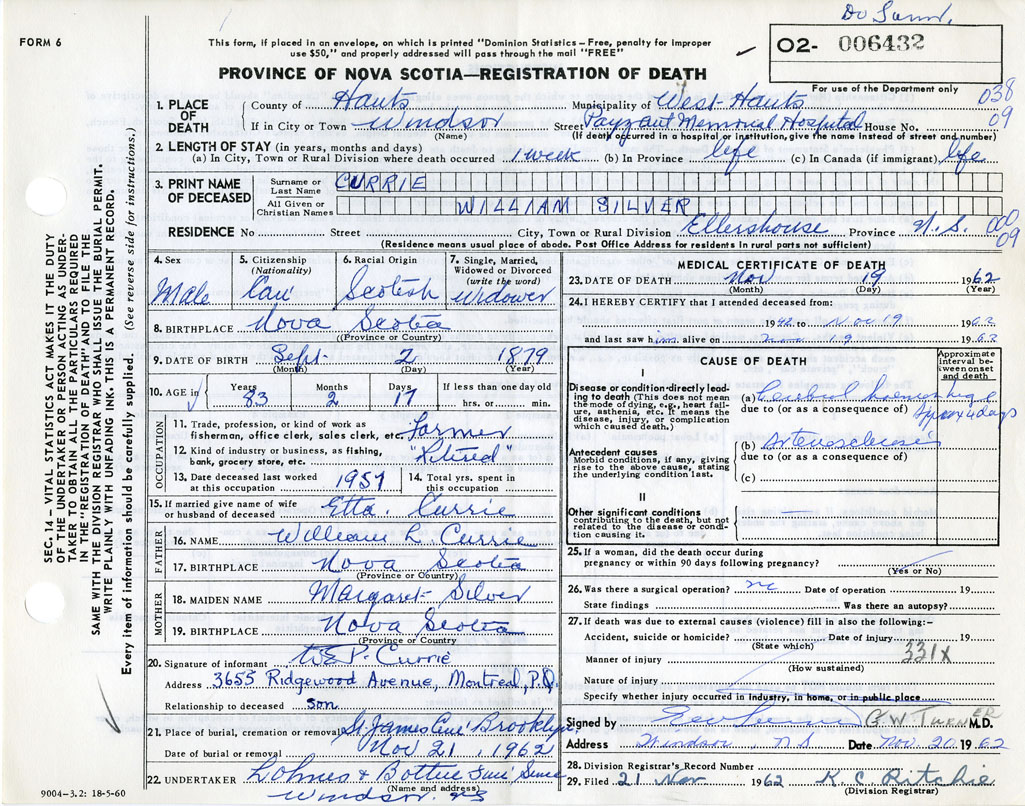 FORM 6
This form, if placed in an envelope, on which is printed "Dominion Statistics—Free, penalty for improper
use $50," and properly addressed will pass through the mail "FREE"
02- 006432
PROVINCE OF NOVA SCOTIA—REGISTRATION OF DEATH
For use of the Department only
038
09
1. PLACE OF DEATH
County of Hants Municipality of West-Hants
If in City or Town Windsor Street Payzant Memorial Hospital House No.
(Name) (If death occurred in a hospital or institution, give the name instead of street and number)
2. LENGTH OF STAY (in years, months and days)
(a) In City, Town or Rural Division where death occurred 1 week (b) In Province life (c) In Canada (if immigrant) life
3. PRINT NAME OF DECEASED
Surname or Last Name CURRIE
All Given or Christian Names WILLIAM SILVER
RESIDENCE No Street City, Town or Rural Division Ellershouse Province N.S.
000
09
(Residence means usual place of abode. Post Office Address for residents in rural parts not sufficient)
4. Sex Male
5. Citizenship (Nationality) Can
6. Racial Origin Scotish
7. Single, Married, Widowed or Divorced (write the word) Widower
8. BIRTHPLACE Nova Scotia
(Province or Country)
9. DATE OF BIRTH Sept 2 1879
(Month) (Day) (Year)
10. AGE in Years 83 Months 2 Days 17 If less than one day old
hrs. or min.
OCCUPATION
11. Trade, profession, or kind of work as
fisherman, office clerk, sales clerk, etc. Farmer
12. Kind of industry or business, as fishing,
bank, grocery store, etc. "Retired"
13. Date deceased last worked
at this occupation 1957
14. Total yrs. spent in
this occupation
15. If married give name of wife
or husband of deceased Etta Currie
FATHER
16. NAME William L. Currie
17. BIRTHPLACE Nova Scotia
(Province or Country)
MOTHER
18. MAIDEN NAME Margaret Silver
19. BIRTHPLACE Nova Scotia
(Province or Country)
20. Signature of informant W.E.P. Currie
Address 3655 Ridgewood Avenue, Montreal, P.Q.
Relationship to deceased son
21. Place of burial, cremation or removal St James Cem' Brooklyn
Date of burial or removal Nov 21, 1962
22. UNDERTAKER
(Name and address)
Windsor NS
9004-3.2: 18-5-60
MEDICAL CERTIFICATE OF DEATH
23. DATE OF DEATH Nov 19 1962
(Month) (Day) (Year)
24. I HEREBY CERTIFY that I attended deceased from:
1942 to Nov 19 1962
and last saw him alive on 19 1962
CAUSE OF DEATH
Approximate
interval be-
tween onset
and death
I
Disease or condition directly lead-
ing to death (This does not mean
the mode of dying, e.g., heart fail-
ure, asthenia, etc. It means the
disease, injury, or complication
which caused death.)
(a) Cerebral haemorrhage
due to (or as a consequence of) Approx 4 days
Antecedent causes
Morbid conditions, if any, giving
rise to the above cause, stating
the underlying condition last.
(b) Arteriosclerosis
due to (or as a consequence of)
(c)
II
Other significant conditions
contributing to the death, but not
related to the disease or condi-
tion causing it.
25. If a woman, did the death occur during
pregnancy or within 90 days following pregnancy?
(Yes or No)
26. Was there a surgical operation? no Date of operation 19
State findings Was there an autopsy?
27. If death was due to external causes (violence) fill in also the following:-
Accident, suicide or homicide? Date of injury 19
(State which)
331X
Manner of injury
(How sustained)
Nature of injury
Specify whether injury occurred in industry, in home, or in public place
Signed by G.W TURNER M.D.
Address Windsor NS Date Nov. 20 1962
28. Division Registrar's Record Number
29. Filed 21 Nov 1962 K. C. Ritchie
(Division Registrar)
SEC. 14—VITAL STATISTICS ACT MAKES IT THE DUTY
OF THE UNDERTAKER OR PERSON ACTING AS UNDER-
TAKER TO OBTAIN ALL THE PARTICULARS REQUIRED
IN THE "REGISTRATION OF DEATH" AND TO FILE THE
SAME WITH THE DIVISION REGISTRAR WHO SHALL ISSUE THE BURIAL PERMIT.
WRITE PLAINLY WITH UNFADING INK.THIS IS A PERMANENT RECORD.
Every item of information should be carefully supplied. (See reverse side for instructions.)